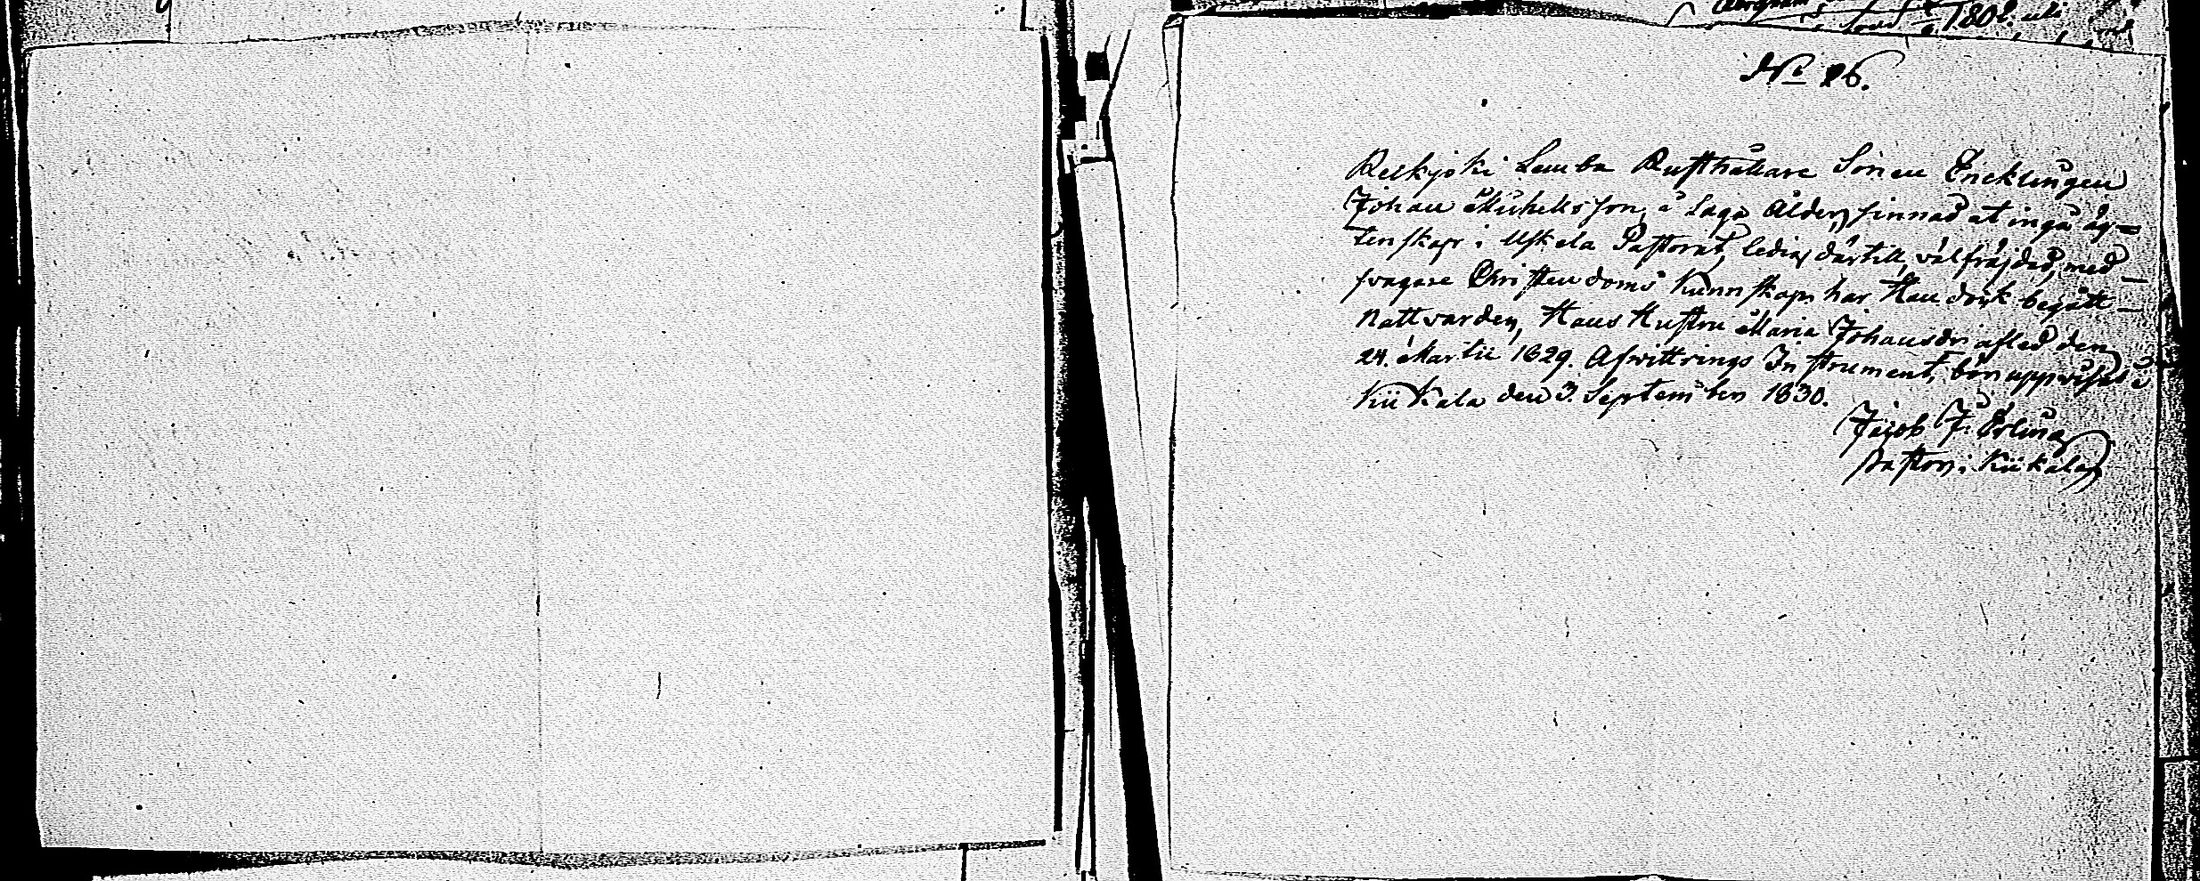 1802.
No 26.
Rekijoki Lemba Rusthållare Sonen Encklingen
Johan Michelsson, i Laga Ålder, sinnad at ingå äg=
tenskap i Uskela Pastorat, ledig därtill, välfräjdad, med
svagare Christendoms Kunnskap, har Han dock begått
Nattvarden, Hans Hustru Maria Johansdr afled den
24. Martii 1829. Afwittrings Instrument, bör uppvisas
Kiikala den 3. September 1830.
Jacob J. Erling
Pastor i Kiikala